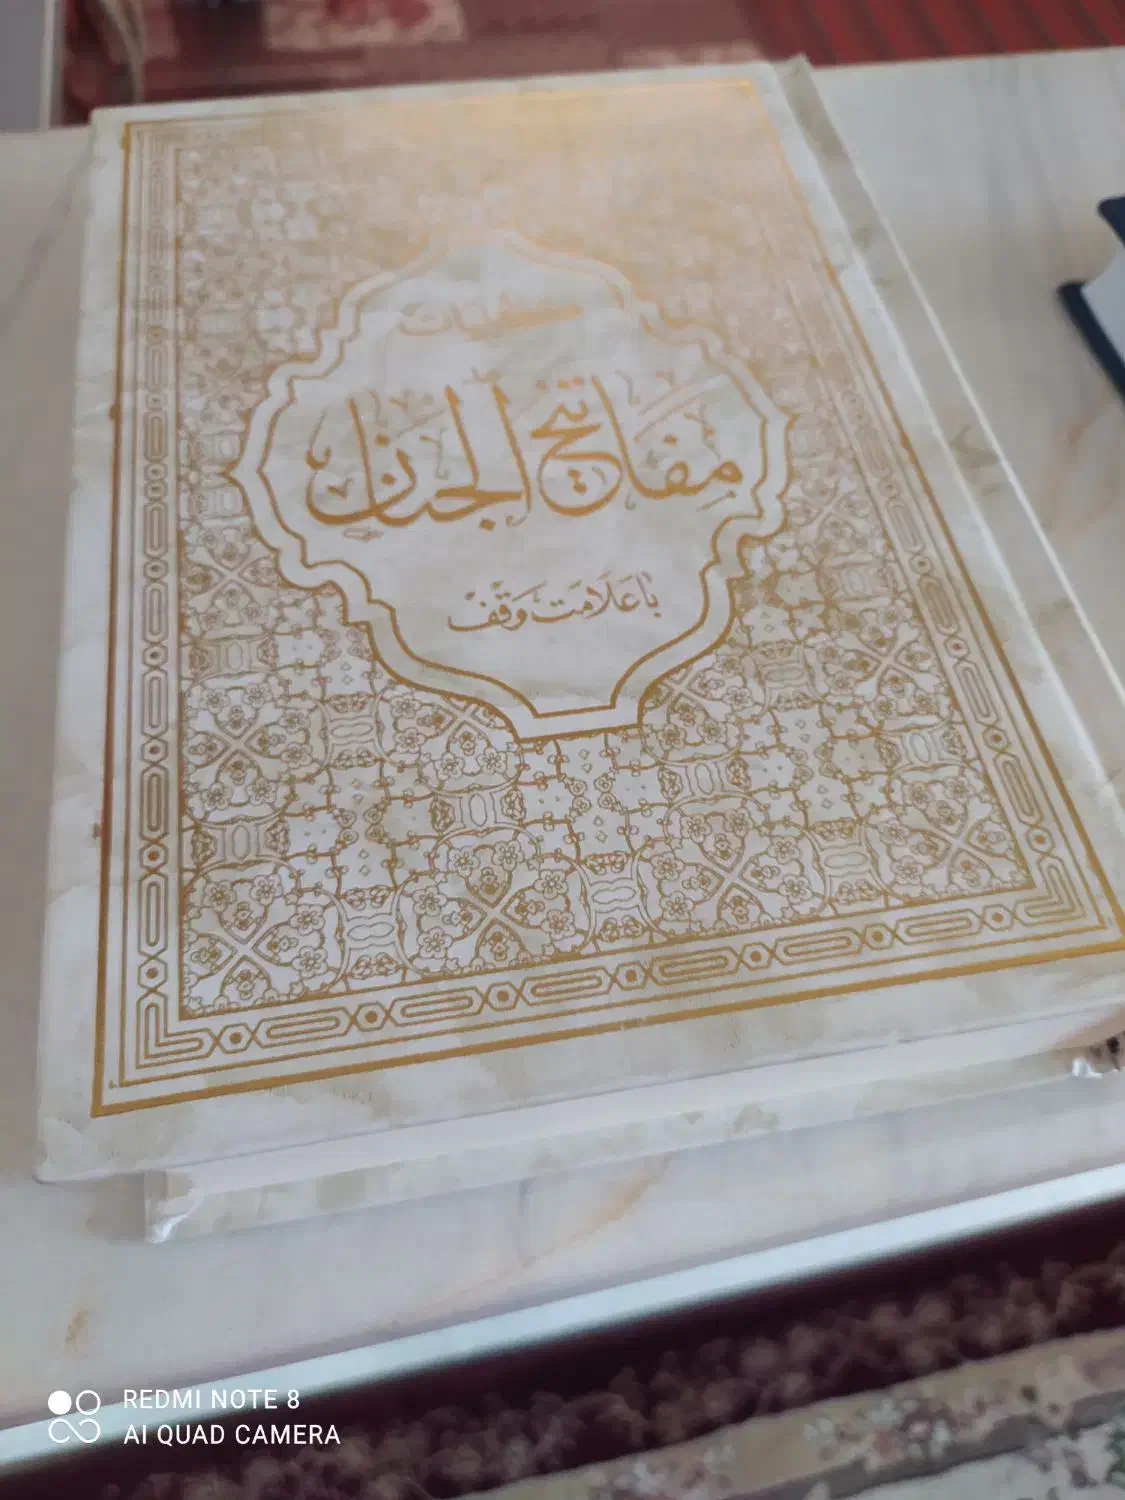 کلیات
مفاتيح الجنان
با علامت وقف
REDMI NOTE 8
AI QUAD CAMERA